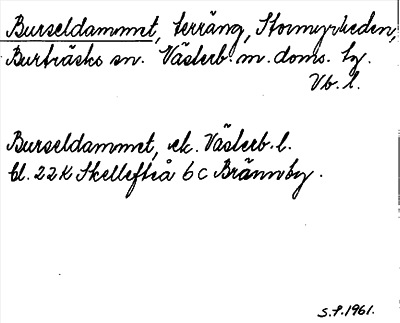 Burseldammet, terräng, Stormyrheden,
Burträsks sn. Västerb. m. doms. tg.
Vb. l.
Burseldammet, ek. Västerb. l.
bl. 22K Skellefteå 6 c Brännby.
S.P. 1961.